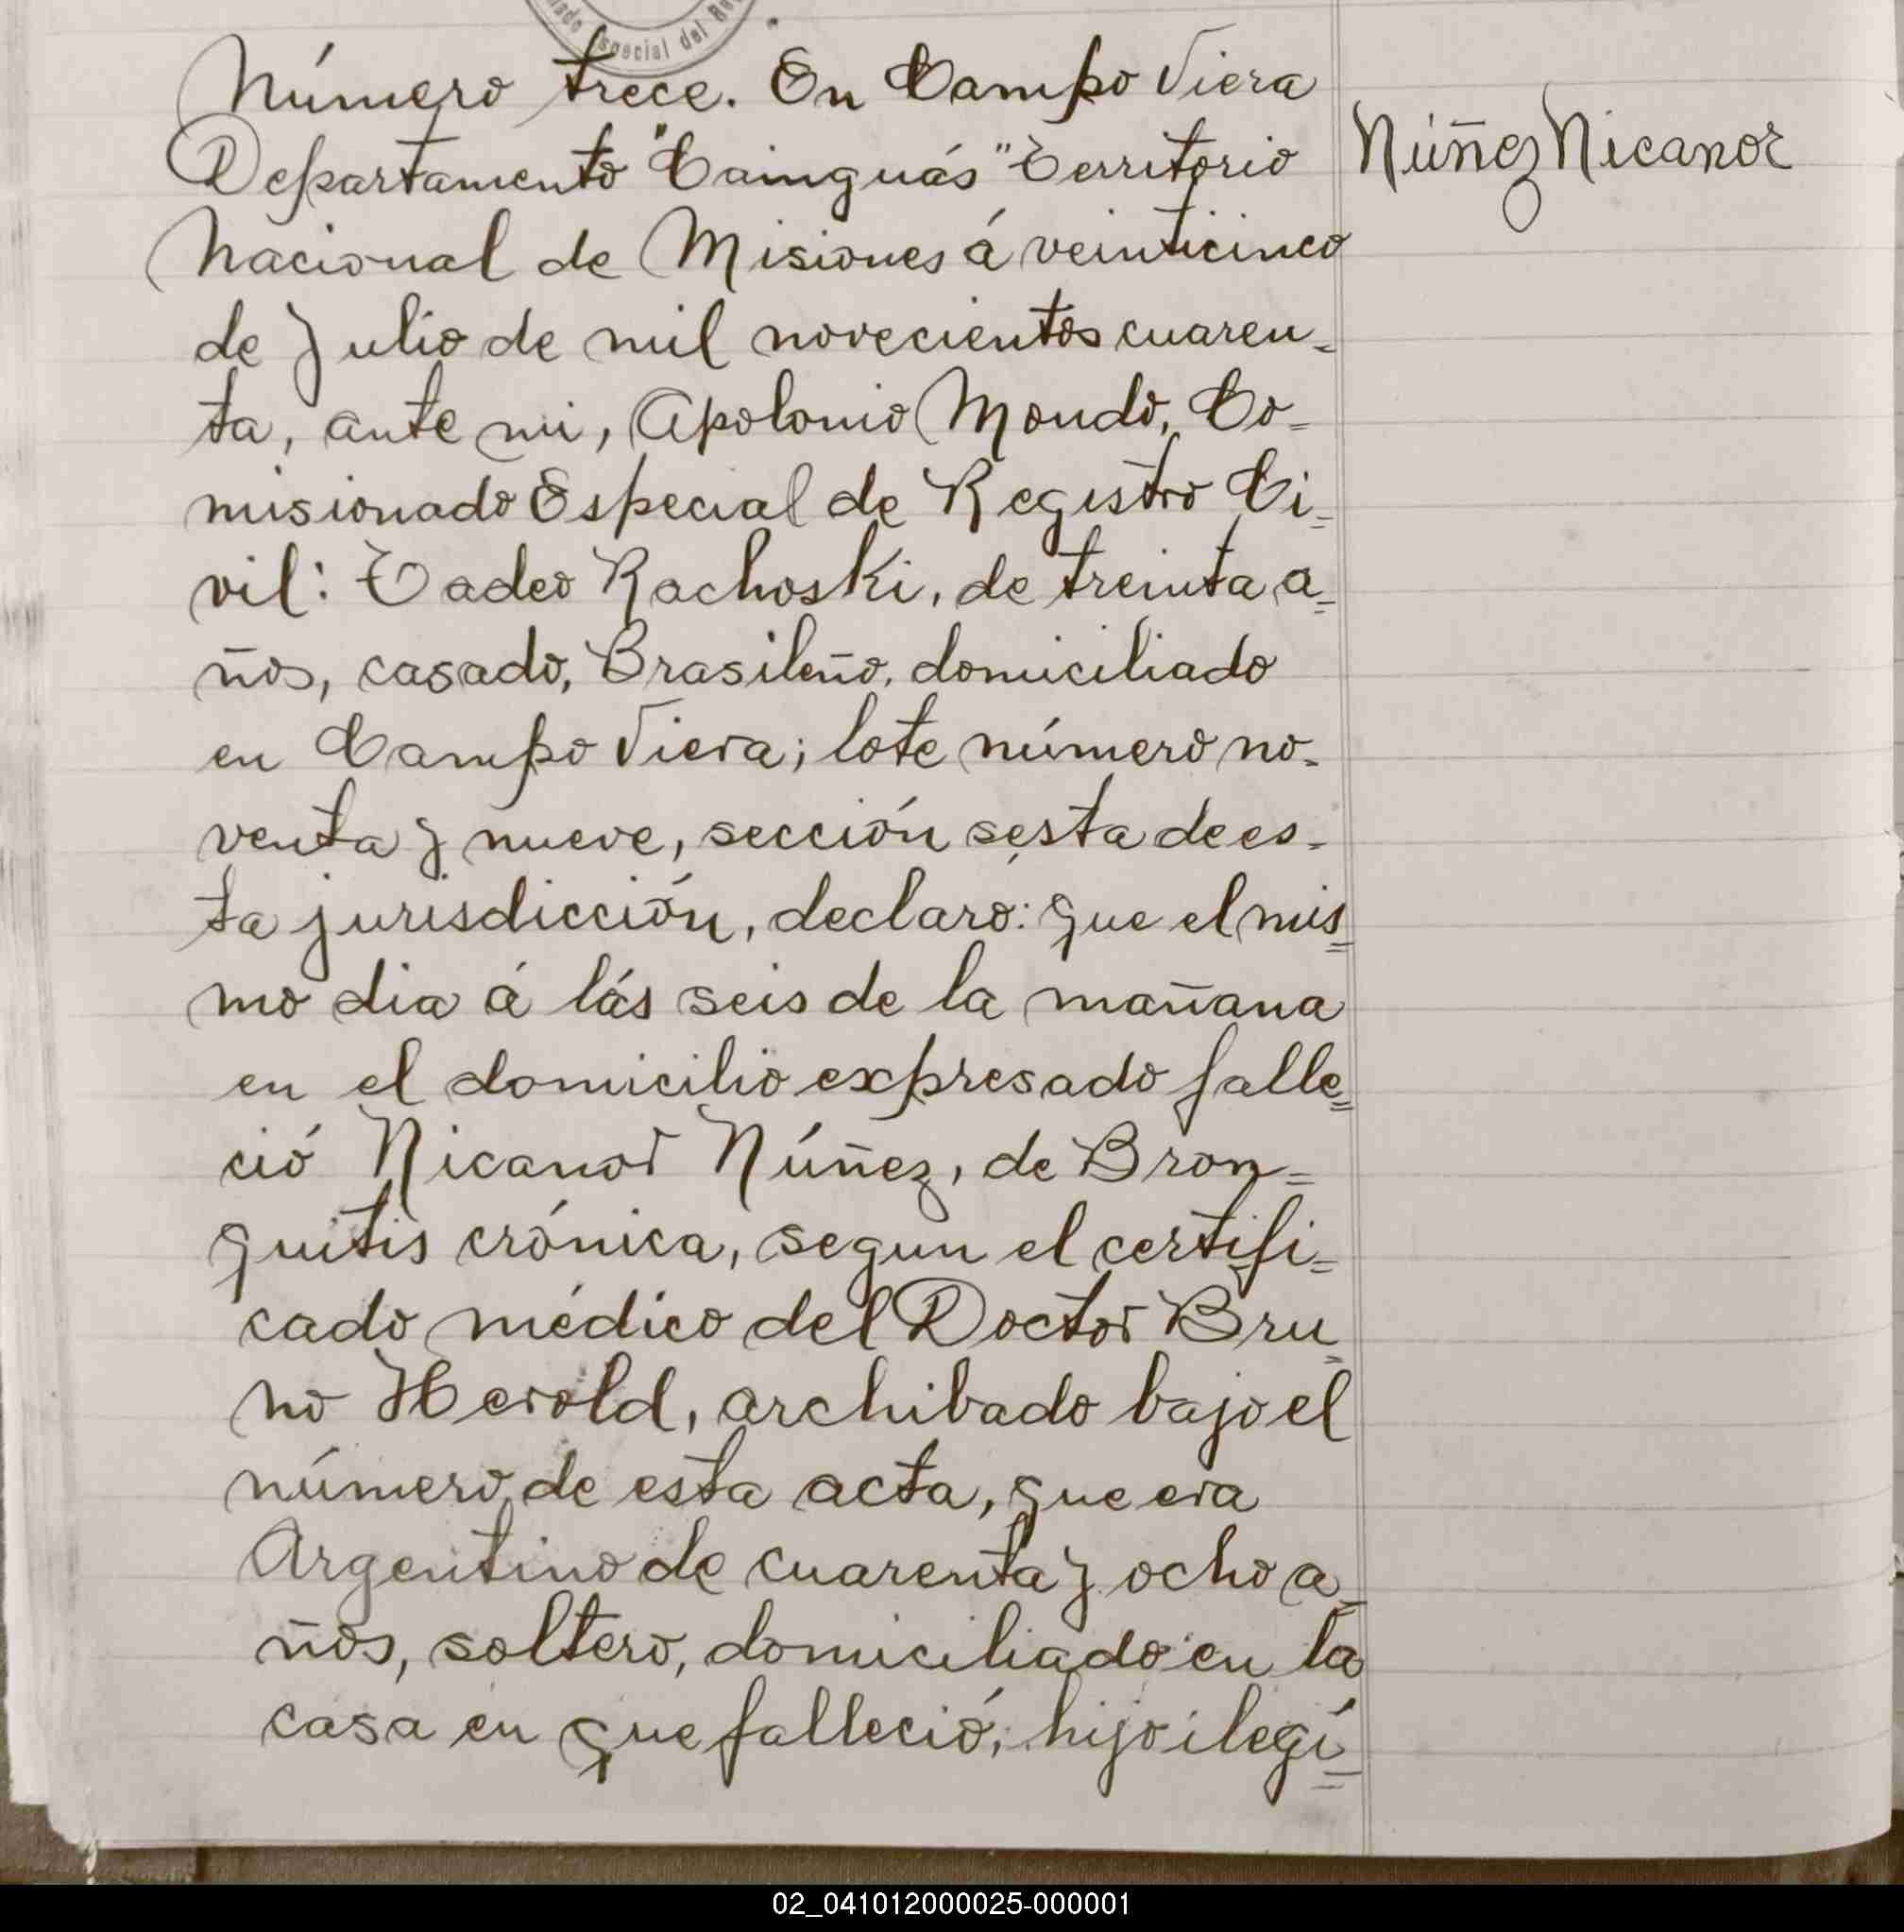 ado Especial del Re
Número trece. En Campo Viera
Departamento "Cainguás" Territorio
Nacional de Misiones á veinticinco
de Julio de mil novecientos cuaren-
ta, ante mi, Apolonio Mondo, Co=
misionado Especial de Registro Ci=
vil: Tadeo Rachoski, de treinta a=
ños, casado, Brasileño, domiciliado
en Campo Viera; lote número no-
venta y nueve, sección sesta de es-
ta jurisdicción, declaro: que el mis=
mo dia á lás seis de la mañana
en el domicilio expresado falle=
ció Nicanor Núñez, de Bron=
quitis crónica, segun el certifi=
cado médico del Doctor Bru=
no Herold, archibado bajo el
número de esta acta, que era
Argentino de cuarenta y ocho a=
ños, soltero, domiciliado en la
casa en que falleció; hijo ilegí=
Núñez Nicanor
02_041012000025-000001